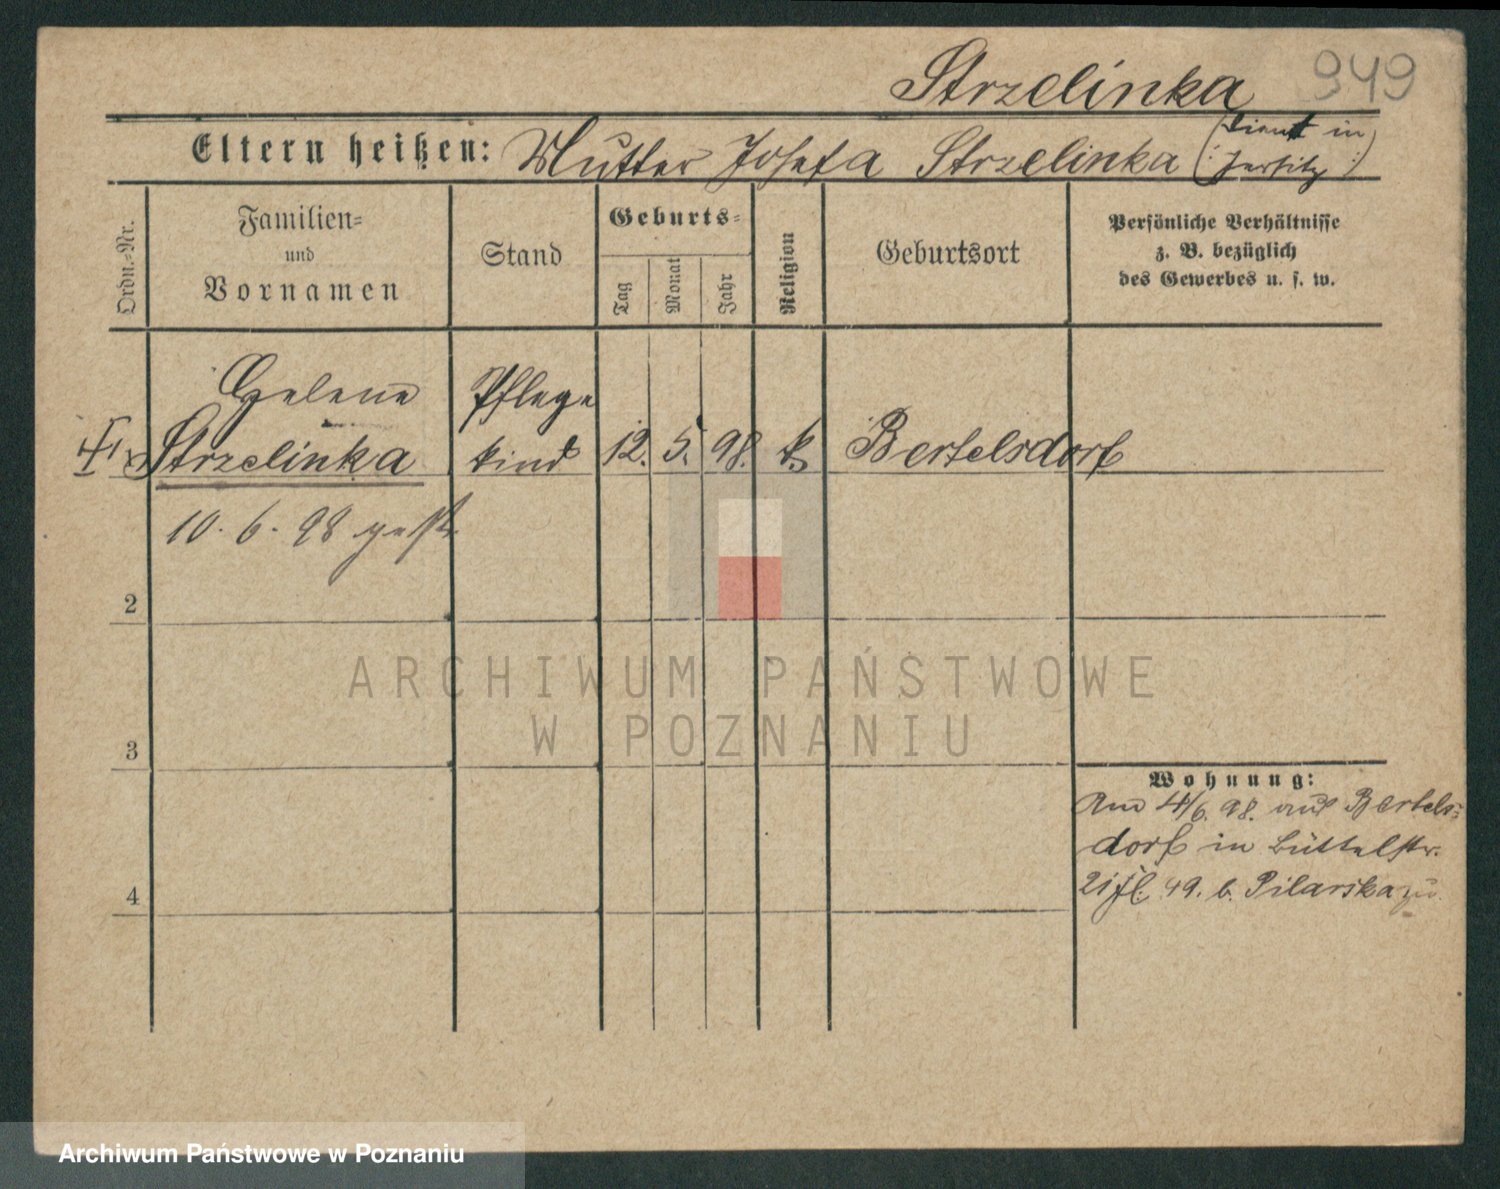 Strzelinka 949
Eltern heißen: Mutter Josefa Strzelinka (: dient in Jersitz :)
Ordn.-Nr.
Familien-
und
Vornamen
Stand
Geburts-
Tag
Monat
Jahr
Religion
Geburtsort
Persönliche Verhältnisse
z. B. bezüglich
des Gewerbes u. s. w.
Helene Pflege
Strzelinka kind 12. 5. 98. k. Bertelsdorf
10. 6. 98 gest.
2
3
4
Wohnung:
Am 4/6. 98. aus Bertels-
dorf in Büttelstr.
21 49. b. Pilarska
ARCHIWUM PAŃSTWOWE
W POZNANIU
Archiwum Państwowe w Poznaniu